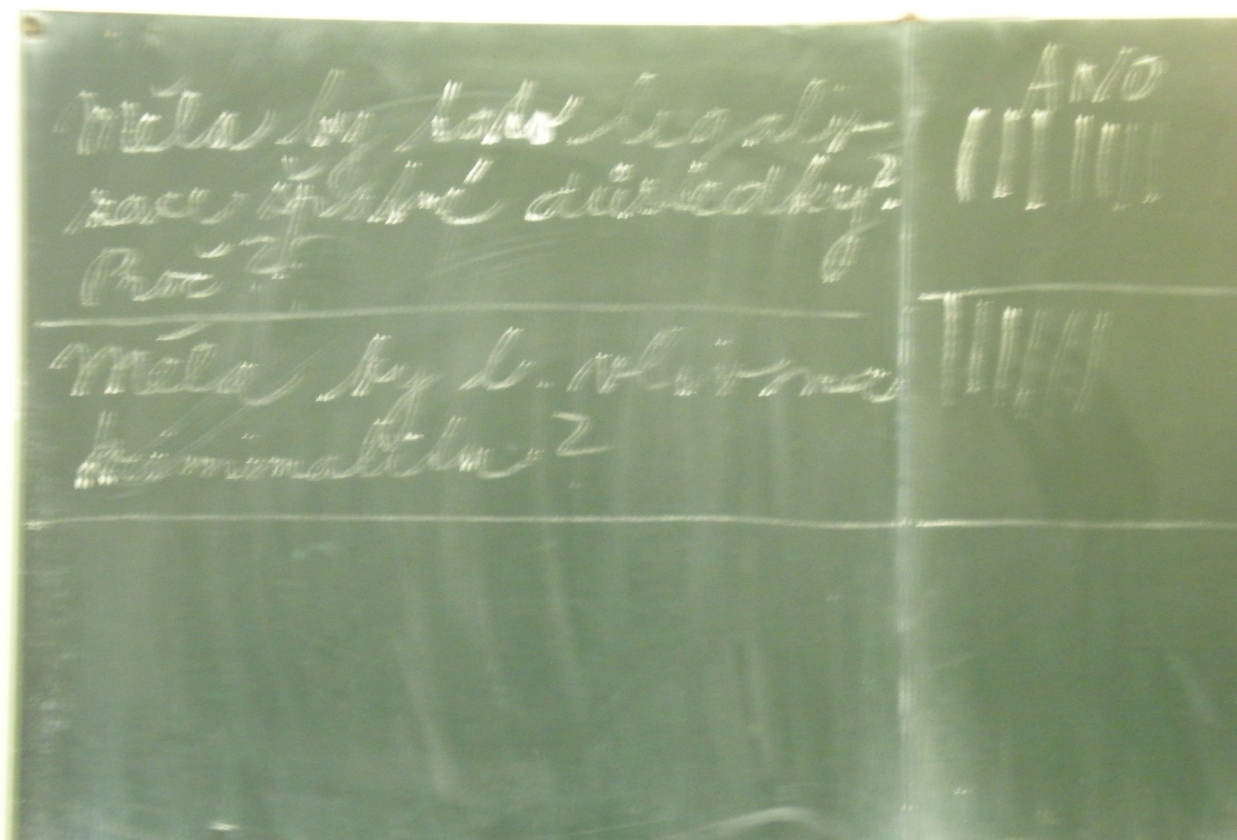 Měla by tato legaly-
zace špatné důsledky?
Proč?
ANO
Měla by l. vliv na
kriminalitu?